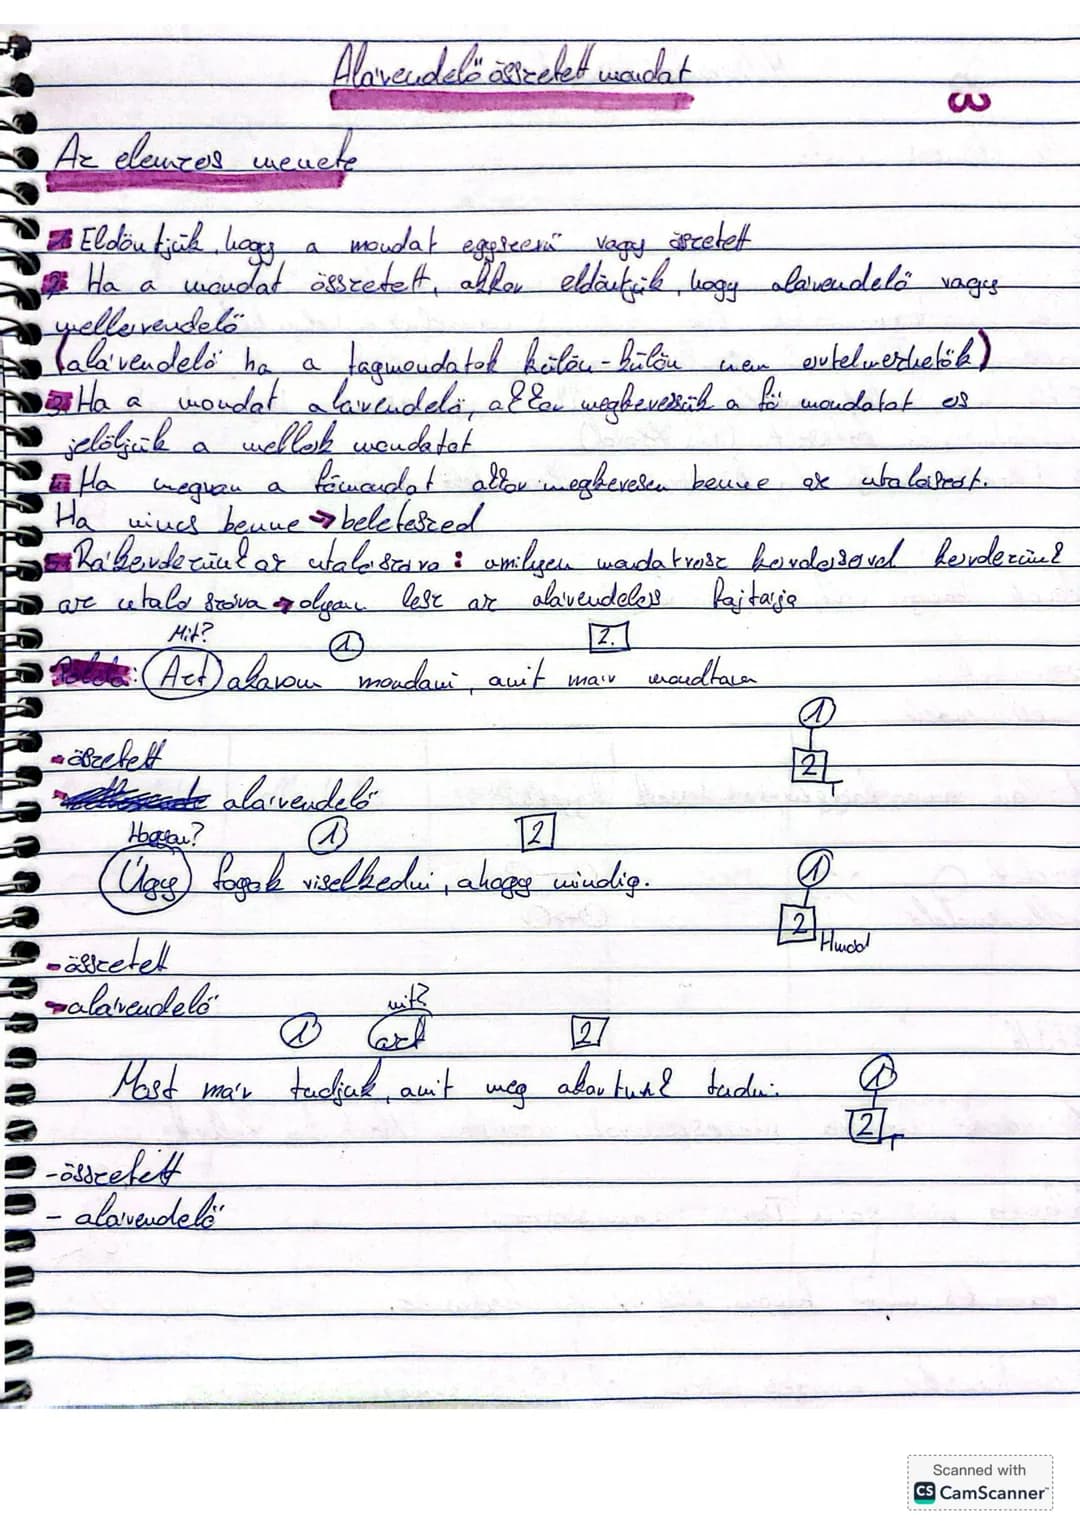 Alárendelő összetett mondat
3
Az elemzés menete
1. Eldöntjük, hogy a mondat egyszerű vagy öszetett
2. Ha a mondat összetett, akkor eldöntjük, hogy alárendelő vagy
mellérendelő
(alá'rendelő ha a tagmondatok külön-külön nem értelmezhetők)
3. Ha a mondat alárendelő, akkor megkeressük a fő mondatat és
jelöljük a mellék mondatot
4. Ha megvan a főmondat akkor megkeresem benne az utalószót.
Ha nincs benne → beleteszed
5. Rákérdezünk az utalószóra: amilyen mondatrész kérdésével kérdezünk
az utaló szóva → olyan lesz az alárendelés fajtája
Mit? 1 2.
Példa: Azt akarom mondani, amit már mondtam
1
- öszetett 2 T
alárendelő
Hogyan? 1 2
Úgy fogok viselkedni, ahogy mindig. 1
2 Hmód
- összetett
- alárendelő mit?
1 azt 2
Most már tudjuk, amit meg akartunk tudni. 1
2 T
- összetett
- alárendelő
Scanned with
CS CamScanner